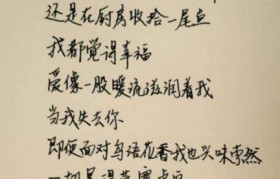 还是在厨房收拾一尾鱼
我都觉得幸福
爱像一股暖流滋润着我
当我失去你
即便面对鸟语花香我也兴味索然
一切显得苍白